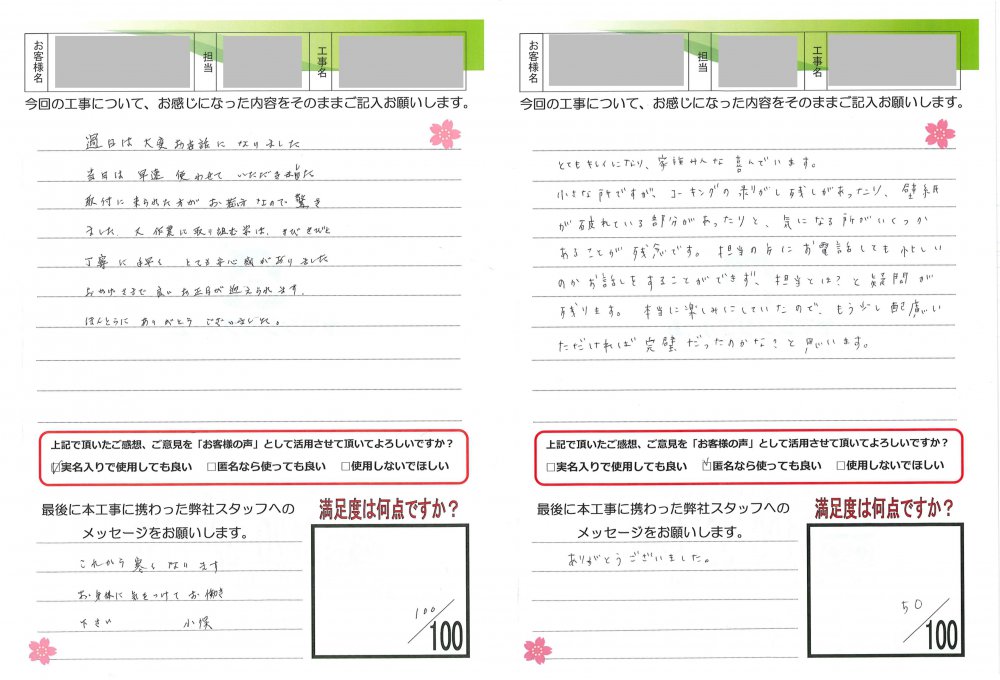 お客様名
担当
工事名
今回の工事について、お感じになった内容をそのままご記入お願いします。
過日は大変お世話になりました
当日は早速使わせていただきました
取付に来られた方がお若い方なので驚き
ました。大作業に取り組む姿は、きびきびと
丁寧に手早く とても安心感がありました
おかげさまで良いお正月が迎えられます。
ほんとうにありがとうございました。
上記で頂いたご感想、ご意見を「お客様の声」として活用させて頂いてよろしいですか？
☑実名入りで使用しても良い □匿名なら使っても良い □使用しないでほしい
最後に本工事に携わった弊社スタッフへの
メッセージをお願いします。
これから寒くなります
お身体に気をつけてお働き
下さい
満足度は何点ですか？
100/100
お客様名
担当
工事名
今回の工事について、お感じになった内容をそのままご記入お願いします。
とてもキレイになり、家族みんな喜んでいます。
小さな所ですが、コーキングの剥がし残しがあったり、壁紙
が破れている部分があったりと、気になる所がいくつか
あることが残念です。担当の方にお電話しても忙しい
のかお話しをすることができず、担当とは？と疑問が
残ります。本当に楽しみにしていたので、もう少し配慮い
ただければ完璧だったのかな？と思います。
上記で頂いたご感想、ご意見を「お客様の声」として活用させて頂いてよろしいですか？
□実名入りで使用しても良い ☑匿名なら使っても良い □使用しないでほしい
最後に本工事に携わった弊社スタッフへの
メッセージをお願いします。
ありがとうございました。
満足度は何点ですか？
50/100